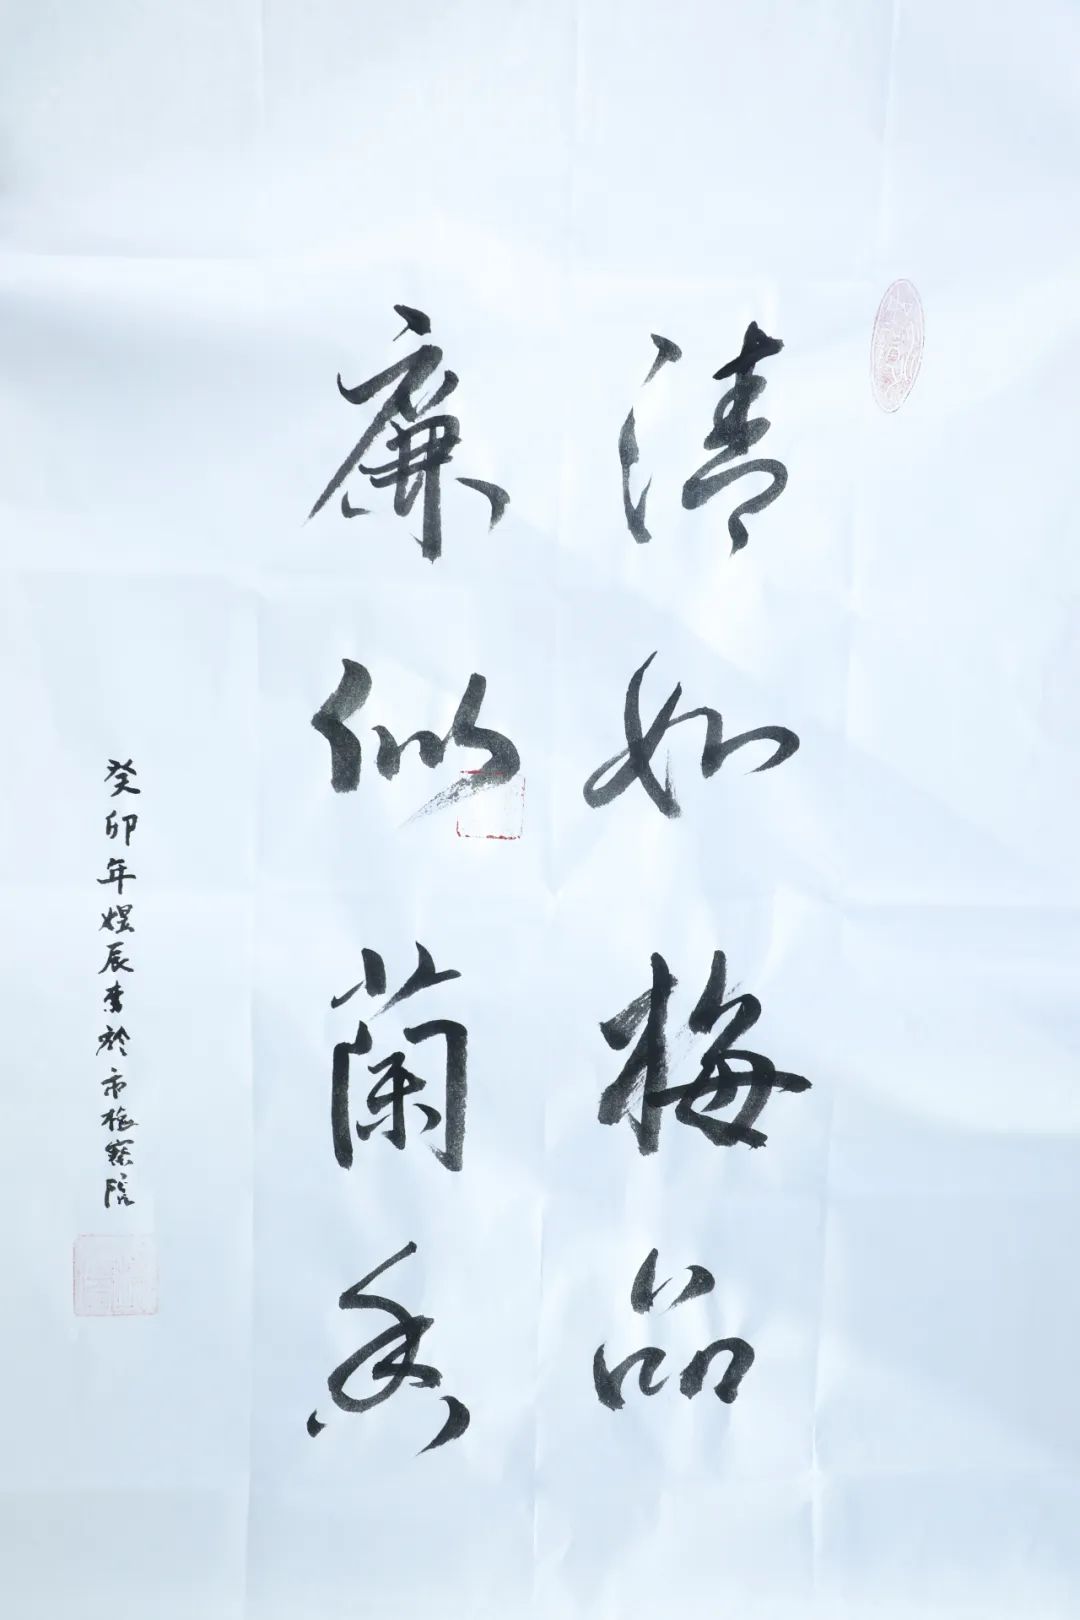 清如梅品
廉似蘭香
癸卯年煜辰書於市檢察院